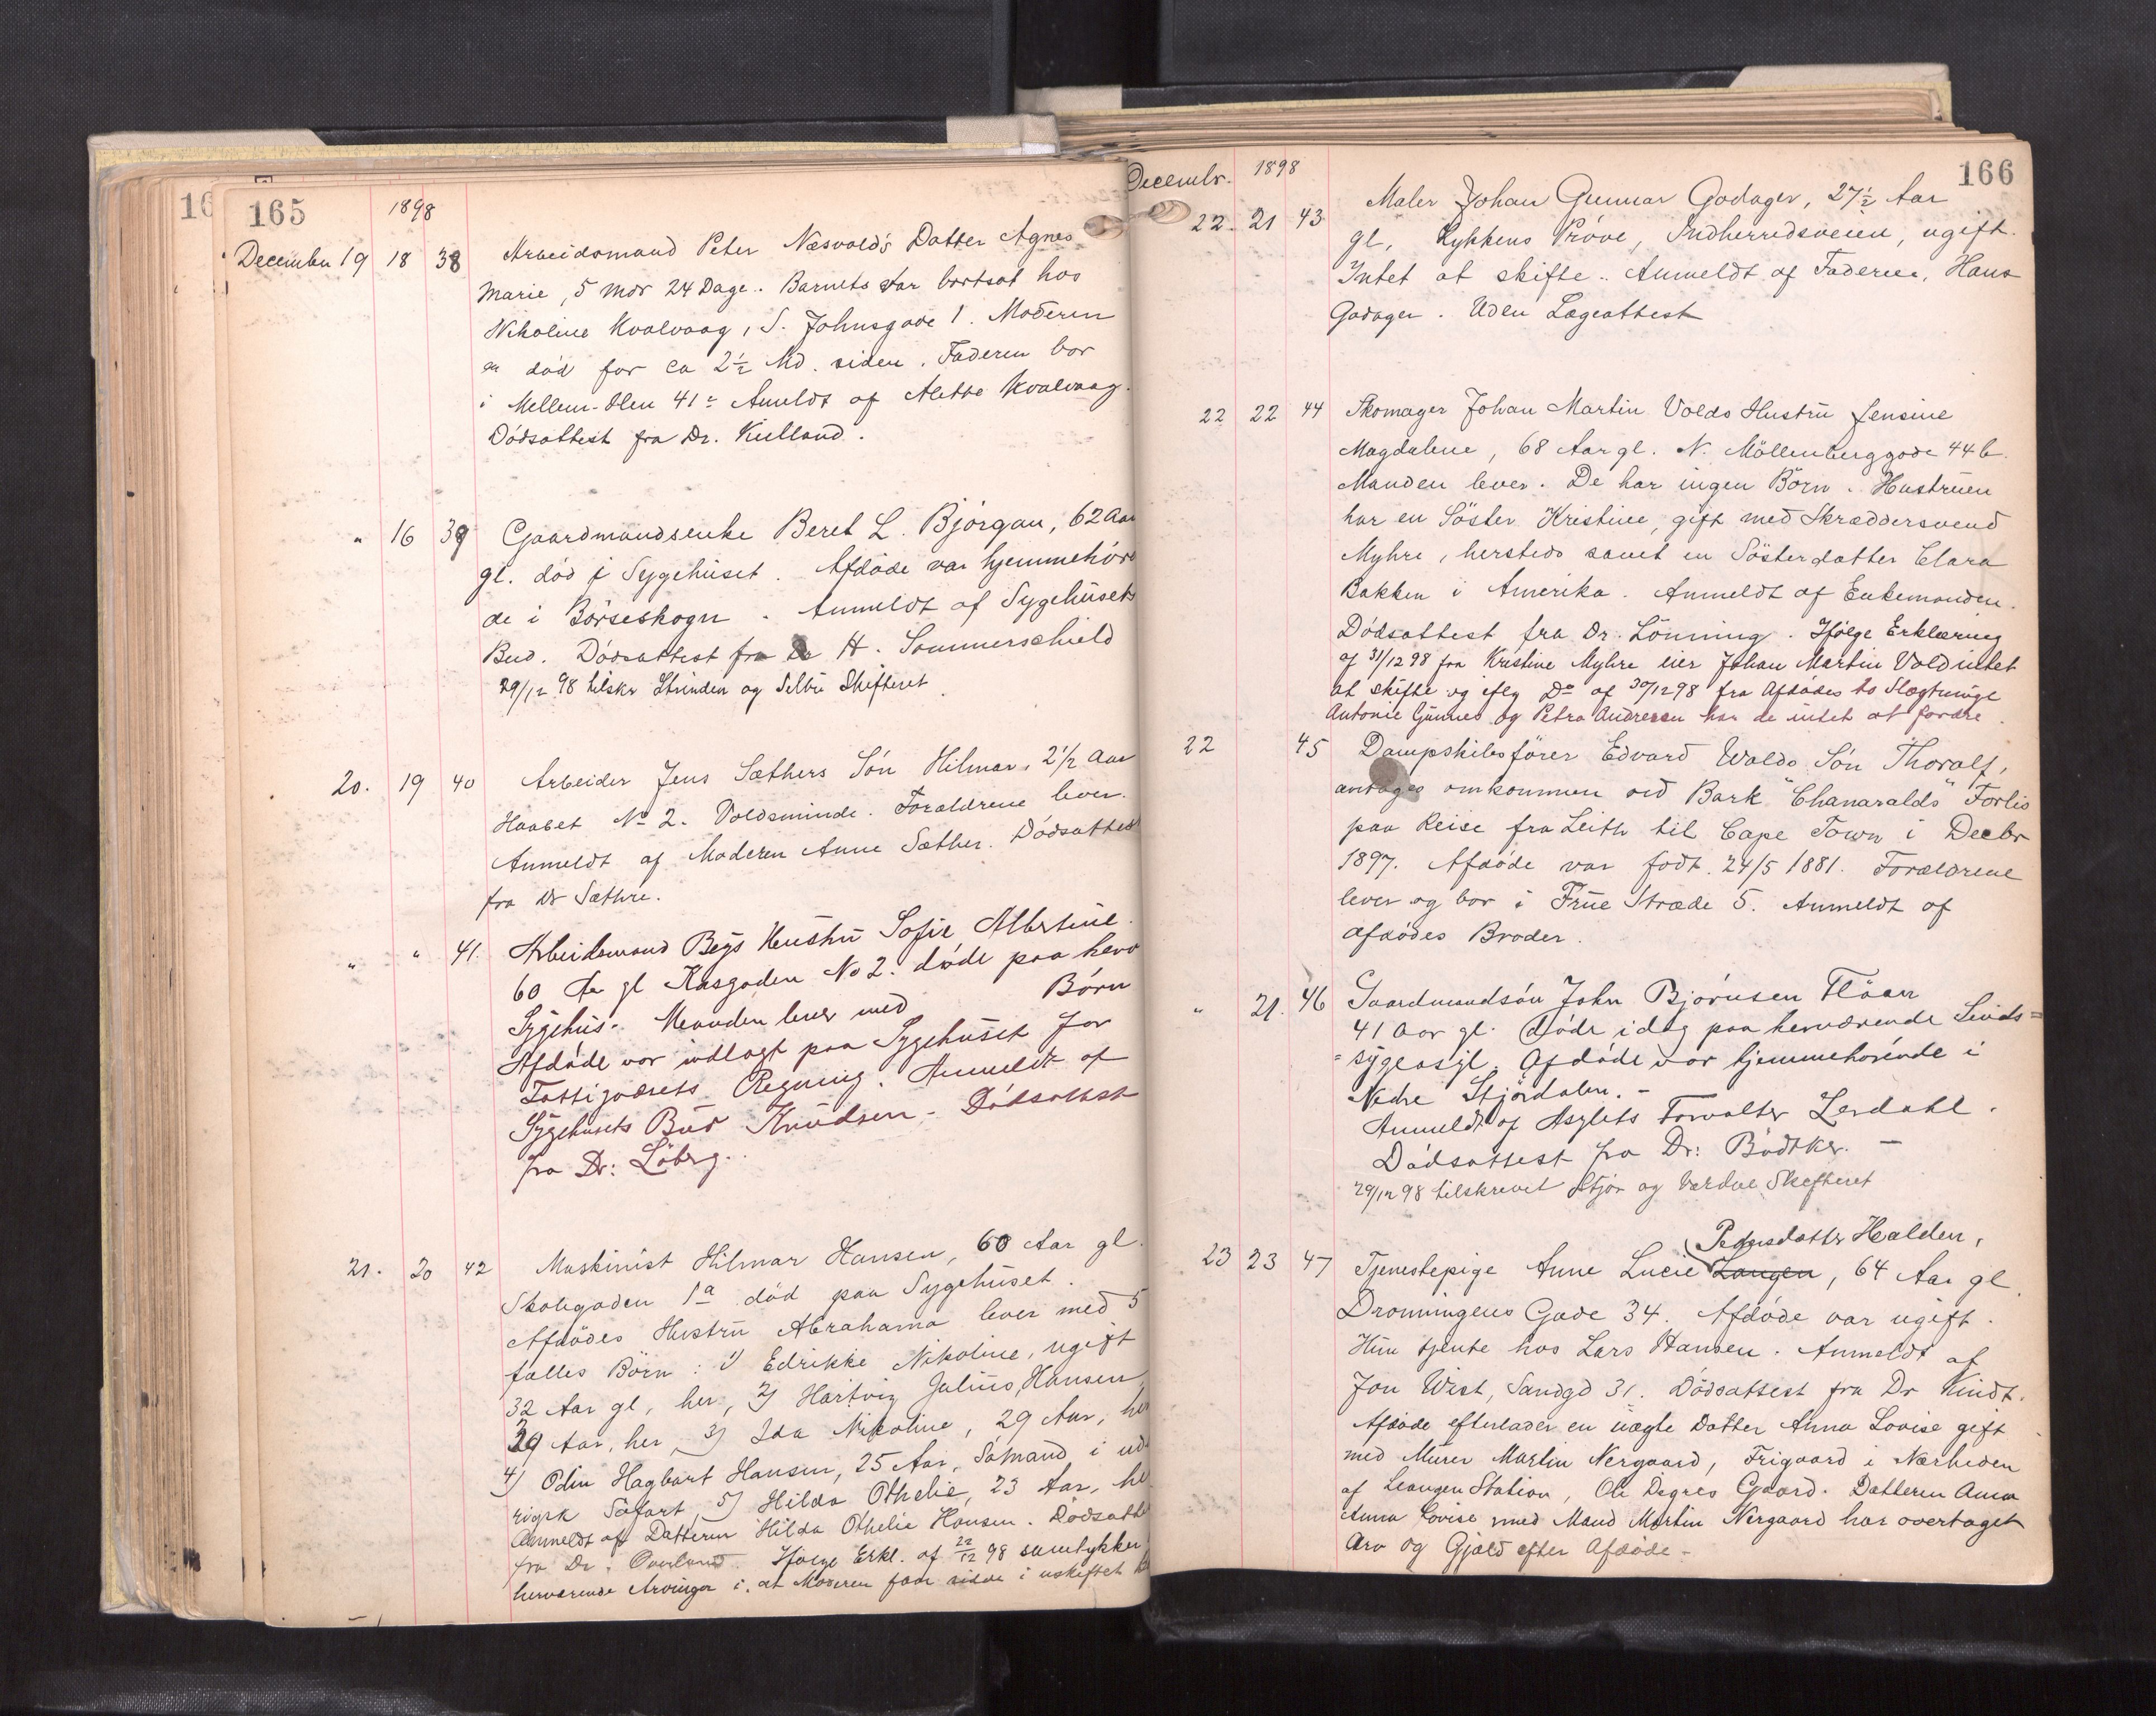 165
1898
December 19 18 38 Arbeidsmand Peter Næsvold's Datter Agnes
Marie, 5 Mdr 24 Dage. Barnets var bortsat hos
Nikoline Kvalvaag, S. Johnsgade 1. Moderen
er död for ca 2½ Md. siden. Faderen bor
i Mellem-Ilen 41. Anmeldt af Alette Kvalvaag.
Dödsattest fra Dr. Kulland.
" 16 39 Gaardmandsenke Beret L. Bjørgan, 62 Aar
gl. död i Sygehuset. Afdöde var hjemmehören
de i Börseskogn. Anmeldt af Sygehusets
Bud. Dödsattest fra Dr H. Sommerschield
29/12 98 tilskr Strinden og Selbu Skifteret
20. 19 40 Arbeider Jens Sæthers Sön Hilmar, 2½ Aar
Haabet No 2. Voldsminde. Forældrene lever.
Anmeldt af Moderen Anne Sæther. Dödsattest
fra Dr Sæthre.
" " 41. Arbeidsmand Beys Hustru Sofie Albertine
60 Aar gl No 2. döde paa herv
Sygehus. Manden lever med Börn
Afdöde var indlagt paa Sygehuset for
Fattigvæsets Regning. Anmeldt af
Sygehusets Bud Knudsen. Dödsattest
fra Dr: Löberg.
21. 20 42 Maskinist Hilmar Hansen, 60 Aar gl.
Skolegaden 1a död paa Sygehuset.
Afdödes Hustru Abrahama lever med 5
fælles Börn: 1) Edrikke Nikoline, ugift
32 Aar gl, her, 2) Hartvig Julius Hansen,
29 Aar, her, 3) Ida Nikoline, 29 Aar, her
4) Odin Hagbart Hansen, 25 Aar, Sömand i ud
rigsk Söfart, 5) Hilda Othelie, 23 Aar, her
Anmeldt af Datteren Hilda Othelie Hansen. Dödsatte
fra Dr. Overland. Ifölge Erkl. af 22/12 98 samtykker
herværende Arvinger i, at Moderen faar sidde i uskiftet
166
Decembr. 1898
22 21 43 Maler Johan Gunnar Godager, 27½ Aar
gl, Lykkens Pröve, Indherredsveien, ugift.
Intet at skifte. Anmeldt af Faderen, Hans
Godager. Uden Lægeattest
22 22 44 Skomager Johan Martin Volds Hustru Jensine
Magdalene, 68 Aar gl. N. Möllenberggade 44 b.
Manden lever. De har ingen Börn. Hustruen
har en Söster Kristine, gift med Skræddersvend
Myhre, hersteds samt en Sösterdatter Clara
Bakken i Amerika. Anmeldt af Enkemanden.
Dödsattest fra Dr. Lönning. Ifölge Erklæring
af 31/12 98 fra Kristine Myhre eier Johan Martin Vold intet
at skifte og iflg Do af 30/12 98 fra Afdödes to Slægtninge
Antonie Gunnes og Petra Andresen har de intet at fordre.
22 45 Dampskibsförer Edvard Waldo Sön Thoralf,
antages omkommen ved Bark "Chanaralds" Forlis
paa Reise fra Leith til Cape Town i Decbr
1897. Afdöde var födt 24/5 1881. Forældrene
lever og bor i Frue Stræde 5. Anmeldt af
Afdödes Broder.
" 21. 46 Gaardmandssön John Björnsen Flöan
41 Aar gl. döde idag paa herværende Sinds=
=sygeasyl. Afdöde var hjemmehörende i
Nedre Stjördalen. -
Anmeldt af Asylets Forvalter Lerdahl.
Dödsattest fra Dr: Bödtker. -
29/12 98 tilskrevet Stjör og Verdal Skifteret
Pedersdatter Halden,
23 23 47 Tjenestepige Anne Lucie Langen, 64 Aar gl.
Dronningens Gade 34. Afdöde var ugift.
Hun tjente hos Lars Hansen. Anmeldt af
Jon Wist, Sandgd 31. Dödsattest fra Dr Kindt.
Afdöde efterlader en uægte Datter Anna Lovise gift
med Murer Martin Nergaard, Frigaard i Nærheden
af Leangen Station, Ole Digres Gaard. Datteren Anna
Anna Lovise med Mand Martin Nergaard har overtaget
Arv og Gjæld efter Afdöde -